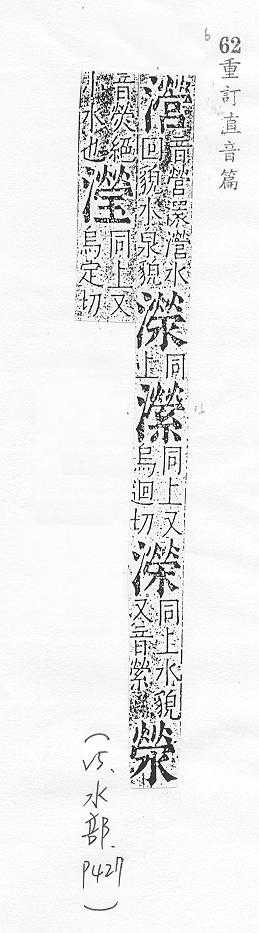 62重訂直音篇
音營澴水
回貌水泉貌
濴
同
上
瀠
同上又
烏迴切
濚
同上水貌
又音縈
滎
音熒絕
小水也
瀅
同上又
烏定切
(V5.水部.P427)